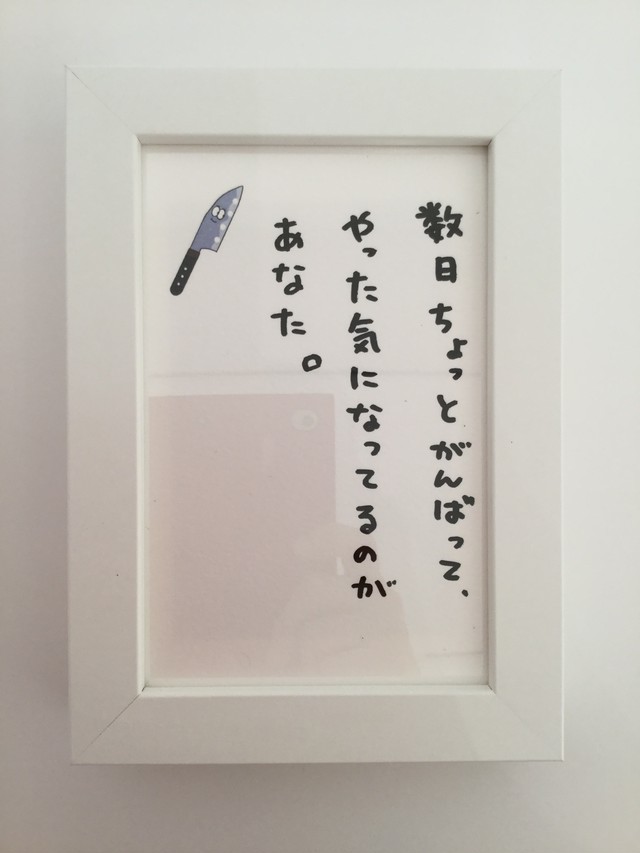 数日ちょっとがんばって、
やった気になってるのが
あなた。